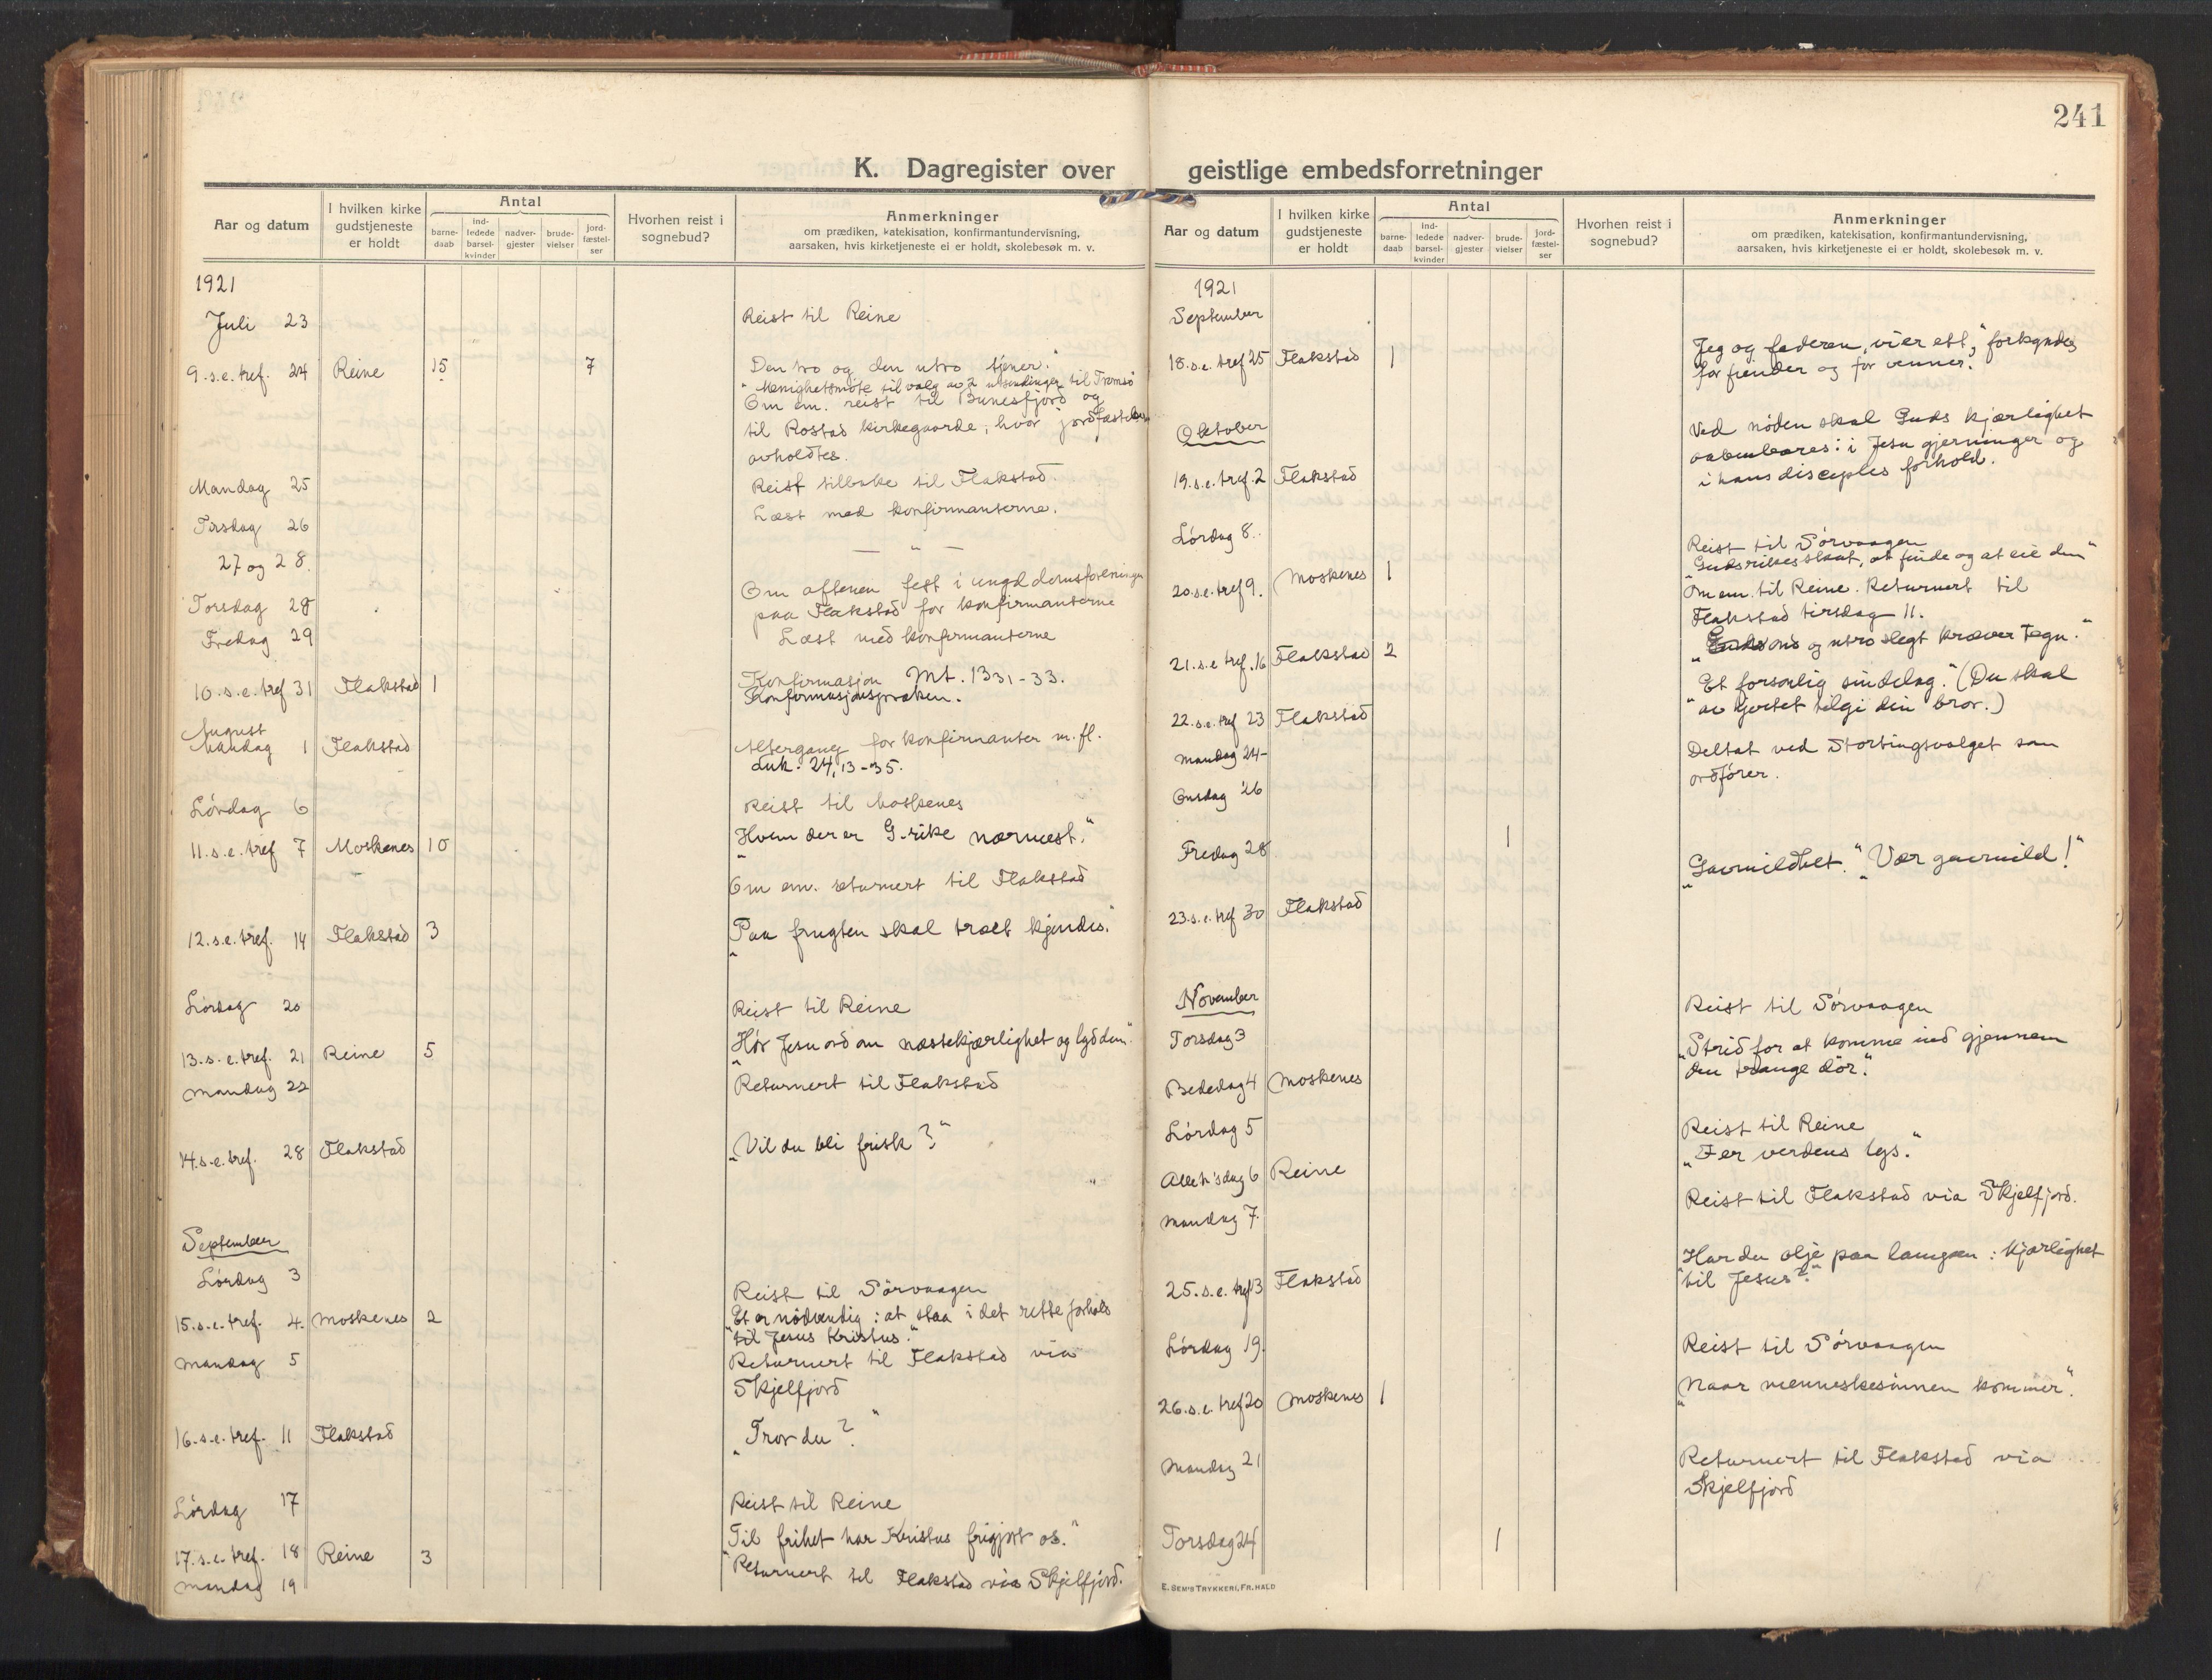 241
K. Dagregister over geistlige embedsforretninger
Aar og datum
I hvilken kirke gudstjeneste er holdt
Antal
barne-daab
ind-ledede barsel-kvinder
nadver-gjester
brude-vielser
jord-fæstel-ser
Hvorhen reist i sognebud?
Anmerkninger
om prædiken, katekisation, konfirmantundervisning,
aarsaken, hvis kirketjeneste ei er holdt, skolebesøk m. v.
1921
Juli 23 Reist til Reine
9.s.e.tref. 24 Reine 15 7 Den tro og den utro tjener."
"Menighetsmöte til valg av 2 utsendinger til Tromsö
Om em. reist til Bunesfjord og
til Rostad kirkegaarde, hvor jordfæstelser
avholdtes.
Mandag 25 Reist tilbake til Flakstad.
Tirsdag 26 Læst med konfirmanterne.
27 og 28. — " —
Torsdag 28 Om aftenen fest i ungdomsforeningen
paa Flakstad for konfirmanterne
Fredag 29 Læst med konfirmanterne
10.s.e.tref 31 Flakstad 1 Konfirmasjon Mt. 1331-33.
Konfirmasjonspræken.
August
Mandag 1 Flakstad Altergang for konfirmanter m.fl.
Luk. 24,13-35.
Lördag 6 Reist til Moskenes
11.s.e.tref 7 Moskenes 10 "Hvem der er G.rike nærmest."
Om em. returnert til Flakstad
12.s.e.tref. 14 Flakstad 3 "Paa frugten skal træet kjendes."
Lördag 20 Reist til Reine
13.s.e.tref. 21 Reine 5 "Hör Jesu ord om næstekjærlighet og lyd dem."
Mandag 22 Returnert til Flakstad
14.s.e.tref. 28 Flakstad "Vil du bli frisk?"
September
Lördag 3 Reist til Sörvaagen
15.s.e.tref. 4. Moskenes 2 "Et er nödvendig: at staa i det rette forhold
til Jesus Kristus."
Mandag 5 Returnert til Flakstad via
Skjelfjord
16.s.e.tref. 11 Flakstad "Tror du?"
Lördag 17 Reist til Reine
17.s.e.tref. 18 Reine 3 "Til frihet har Kristus frigjort os."
Mandag 19 Returnert til Flakstad via Skjelfjord.
Aar og datum
I hvilken kirke gudstjeneste er holdt
Antal
barne-daab
ind-ledede barsel-kvinder
nadver-gjester
brude-vielser
jord-fæstel-ser
Hvorhen reist i sognebud?
Anmerkninger
om prædiken, katekisation, konfirmantundervisning,
aarsaken, hvis kirketjeneste ei er holdt, skolebesøk m. v.
1921
September
18.s.e.tref 25 Flakstad 1 Jeg og faderen, vi er ett," forkyndes
for fiender og for venner.
Oktober
19.s.e.tref. 2 Flakstad Ved nöden skal Guds kjærlighet
aabenbares: i Jesu gjerninger og
i hans disciples forhold.
Lördag 8. Reist til Sörvaagen
20.s.e.tref 9. Moskenes 1 "Gudsrikes skat, at finde og at eie den"
Om em. til Reine. Returnert til
Flakstad tirsdag 11.
21.s.e.tref. 16 Flakstad 2 " ond og utro slegt kræver tegn."
22.s.e.tref 23 Flakstad "Et forsonlig sindelag." (Du skal
av hjertet tilgi din bror.)
Mandag 24- Deltat ved Stortingsvalget som
Onsdag 26 ordförer.
Fredag 28 1
23.s.e.tref 30 Flakstad "Gavmildhet." "Vær gavmild!"
November
Torsdag 3 Reist til Sörvaagen
Bededag 4 Moskenes "Strid for at komme ind gjennem
den trange dör."
Lördag 5 Reist til Reine
Alleh'sdag 6 Reine "I er verdens lys."
Mandag 7. Reist til Flakstad via Skjelfjord.
25.s.e.tref 13 Flakstad "Har du olje paa lampen: kjærlighet
til Jesus?"
Lördag 19. Reist til Sörvaagen
26.s.e.tref 20 Moskenes 1 "Naar menneskesönnen kommer."
Mandag 21 Returnert til Flakstad via
Skjelfjord
Torsdag 24 1
E. SEM'S TRYKKERI, FR.HALD